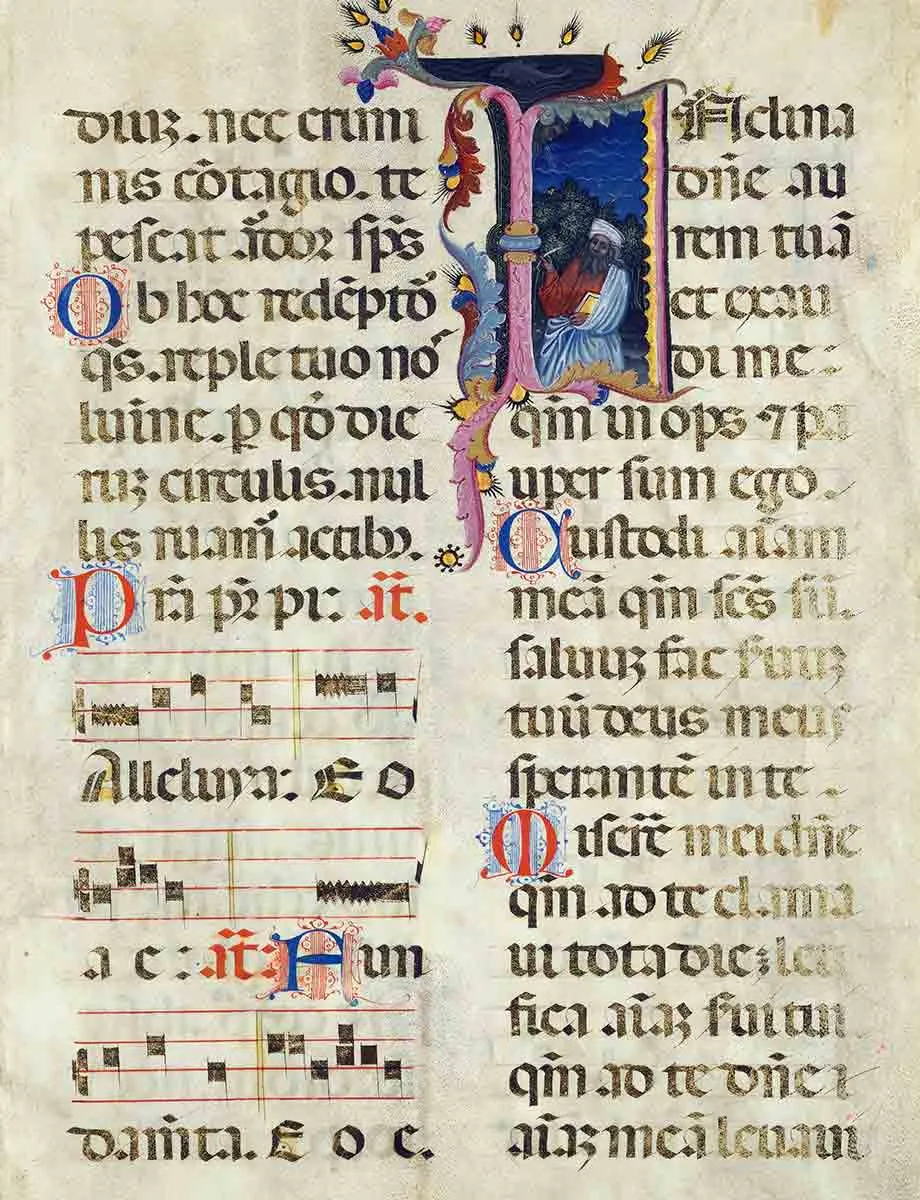 diuꝫ. nec crimi
nis cōtagio. te
pescat a᷑dor sp̄s
Ob hoc redēptō᷑
qs̄. reple tuo nō
lumine. ꝑ qd̄ die
ruꝫ circulis. nul
lis ruam᷑ actibꝫ.
Pr̄a pr̄ pi: an̄.
Alleluya: E o
a e : an̄: Fun
dam̄ta. E o e.
Inclina
dn̄e au
rem tuā
et exau
di me:
qm̄ inops ⁊ pa
uper sum ego.
Custodi aīam
meā qm̄ scs̄ sū.
saluuꝫ fac seruuꝫ
tuū deus meus
sperantē in te.
Miserer̄ mei dn̄e
qm̄ ad te clama
ui tota die: leti
fica aīaꝫ serui tui
qm̄ ad te dn̄e
aīaꝫ meā leuaui